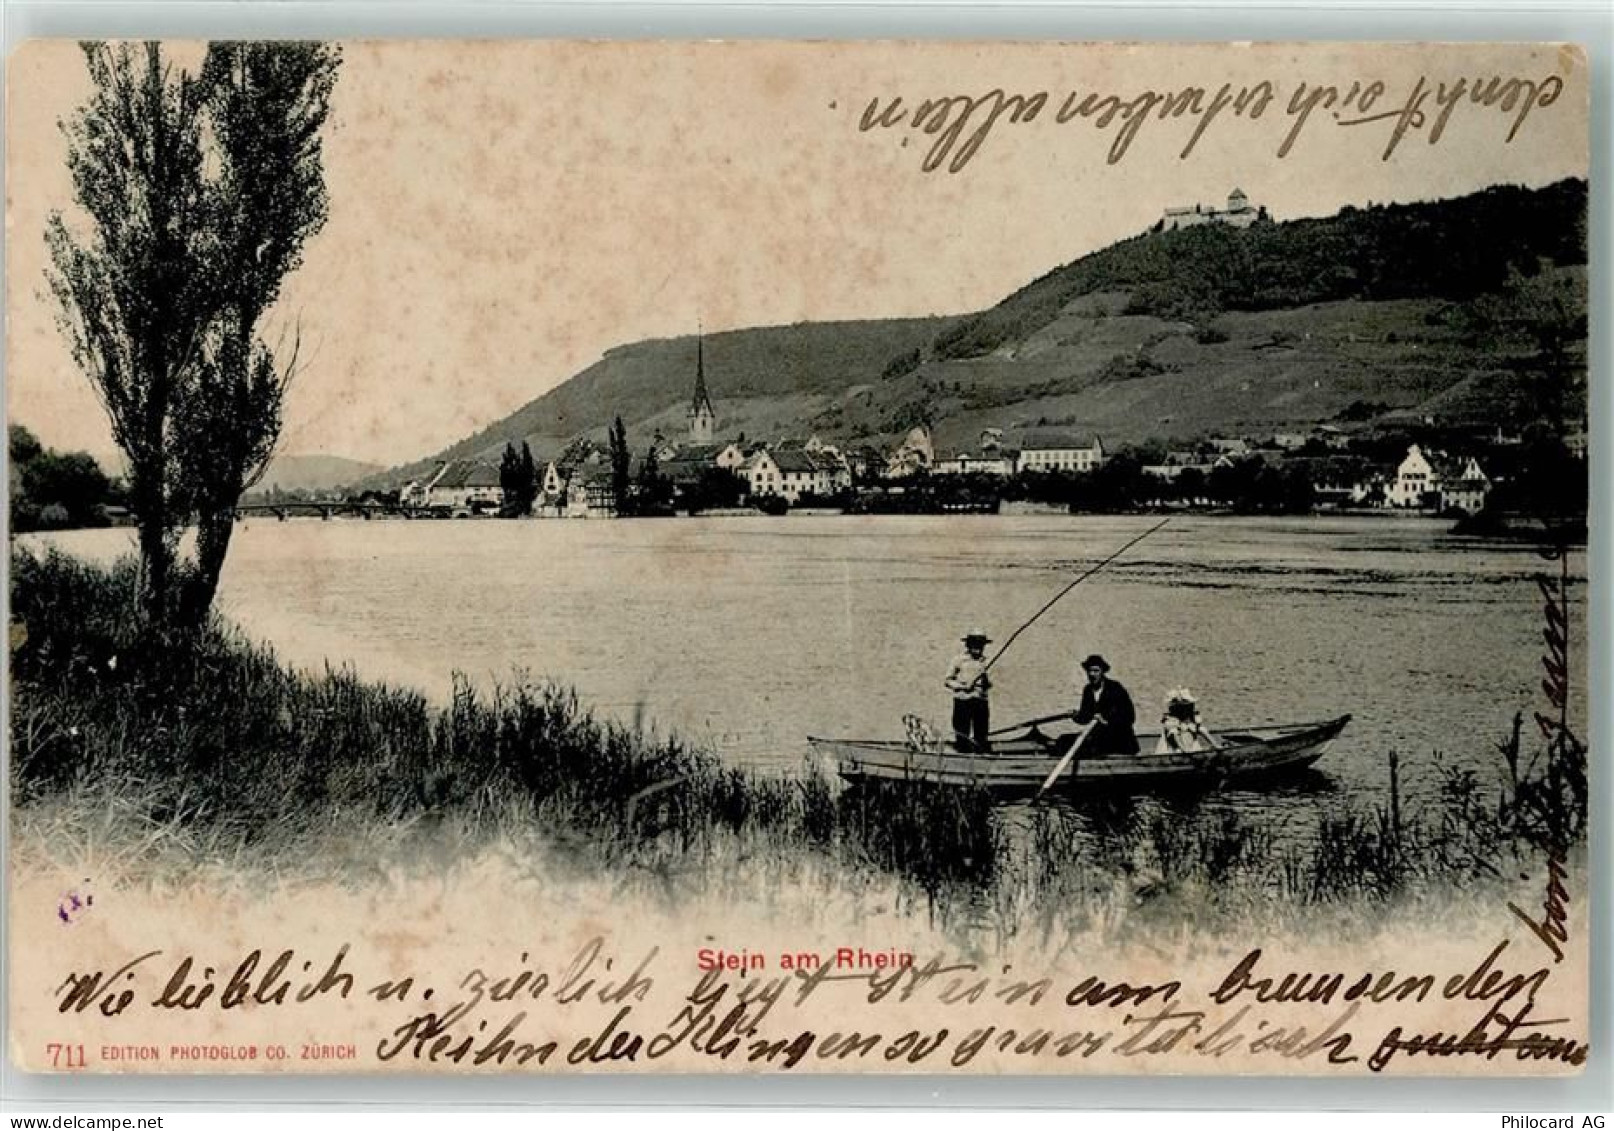 Stein am Rhein
Wie lieblich u. zierlich liegt Stein am brausenden
Rhein der Klingen so gravitätisch
denkt sich erhaben allein
711 EDITION PHOTOGLOB CO. ZÜRICH
Philocard AG